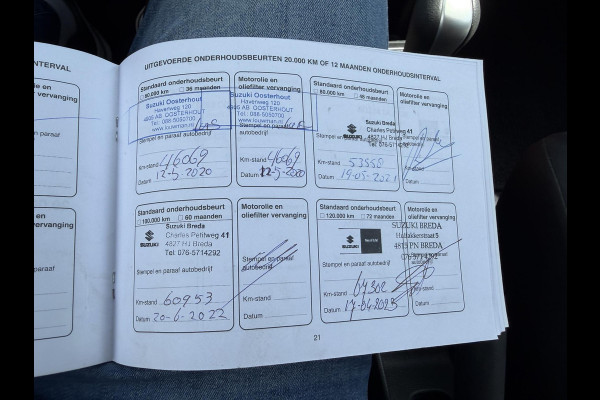 INTERVAL
vervanging
UITGEVOERDE ONDERHOUDSBEURTEN 20.000 KM OF 12 MAANDEN ONDERHOUDSINTERVAL
Standaard onderhoudsbeurt
□ 60.000 km □ 36 maanden
Suzuki Oosterhout
Havenweg 120
AB OOSTERHOUT
Tel.: 088-5050700
www.louwman.nl
Km-stand 46069
Datum 12-5-2020
Motorolie en
oliefilter vervanging
Suzuki Oosterhout
Havenweg 120
AB OOSTERHOUT
Tel.: 088-5050700
www.louwman.nl
Km-stand 46069
Datum 12-5-2020
Standaard onderhoudsbeurt
□ 80.000 km □ 48 maanden
SUZUKI
Suzuki Breda
Charles Petitweg 41
4827 HJ Breda
Tel 076-5714292
Km-stand 53550
Datum 19-05-2021
Motorolie en
oliefilter vervanging
Datum
vervanging
paraaf
Standaard onderhoudsbeurt
□ 100.000 km □ 60 maanden
SUZUKI
Suzuki Breda
Charles Petitweg 41
4827 HJ Breda
Tel 076-5714292
Stempel en paraaf autobedrijf
Km-stand 60953
Datum 20-6-2022
Motorolie en
oliefilter vervanging
Stempel en paraaf
autobedrijf
Km-stand
Datum
Standaard onderhoudsbeurt
□ 120.000 km □ 72 maanden
SUZUKI
Stempel en paraaf autobedrijf
Km-stand 64302
Datum 17-04-2023
Motorolie en
oliefilter vervanging
SUZUKI BREDA
4815 PN BREDA
Datum
21